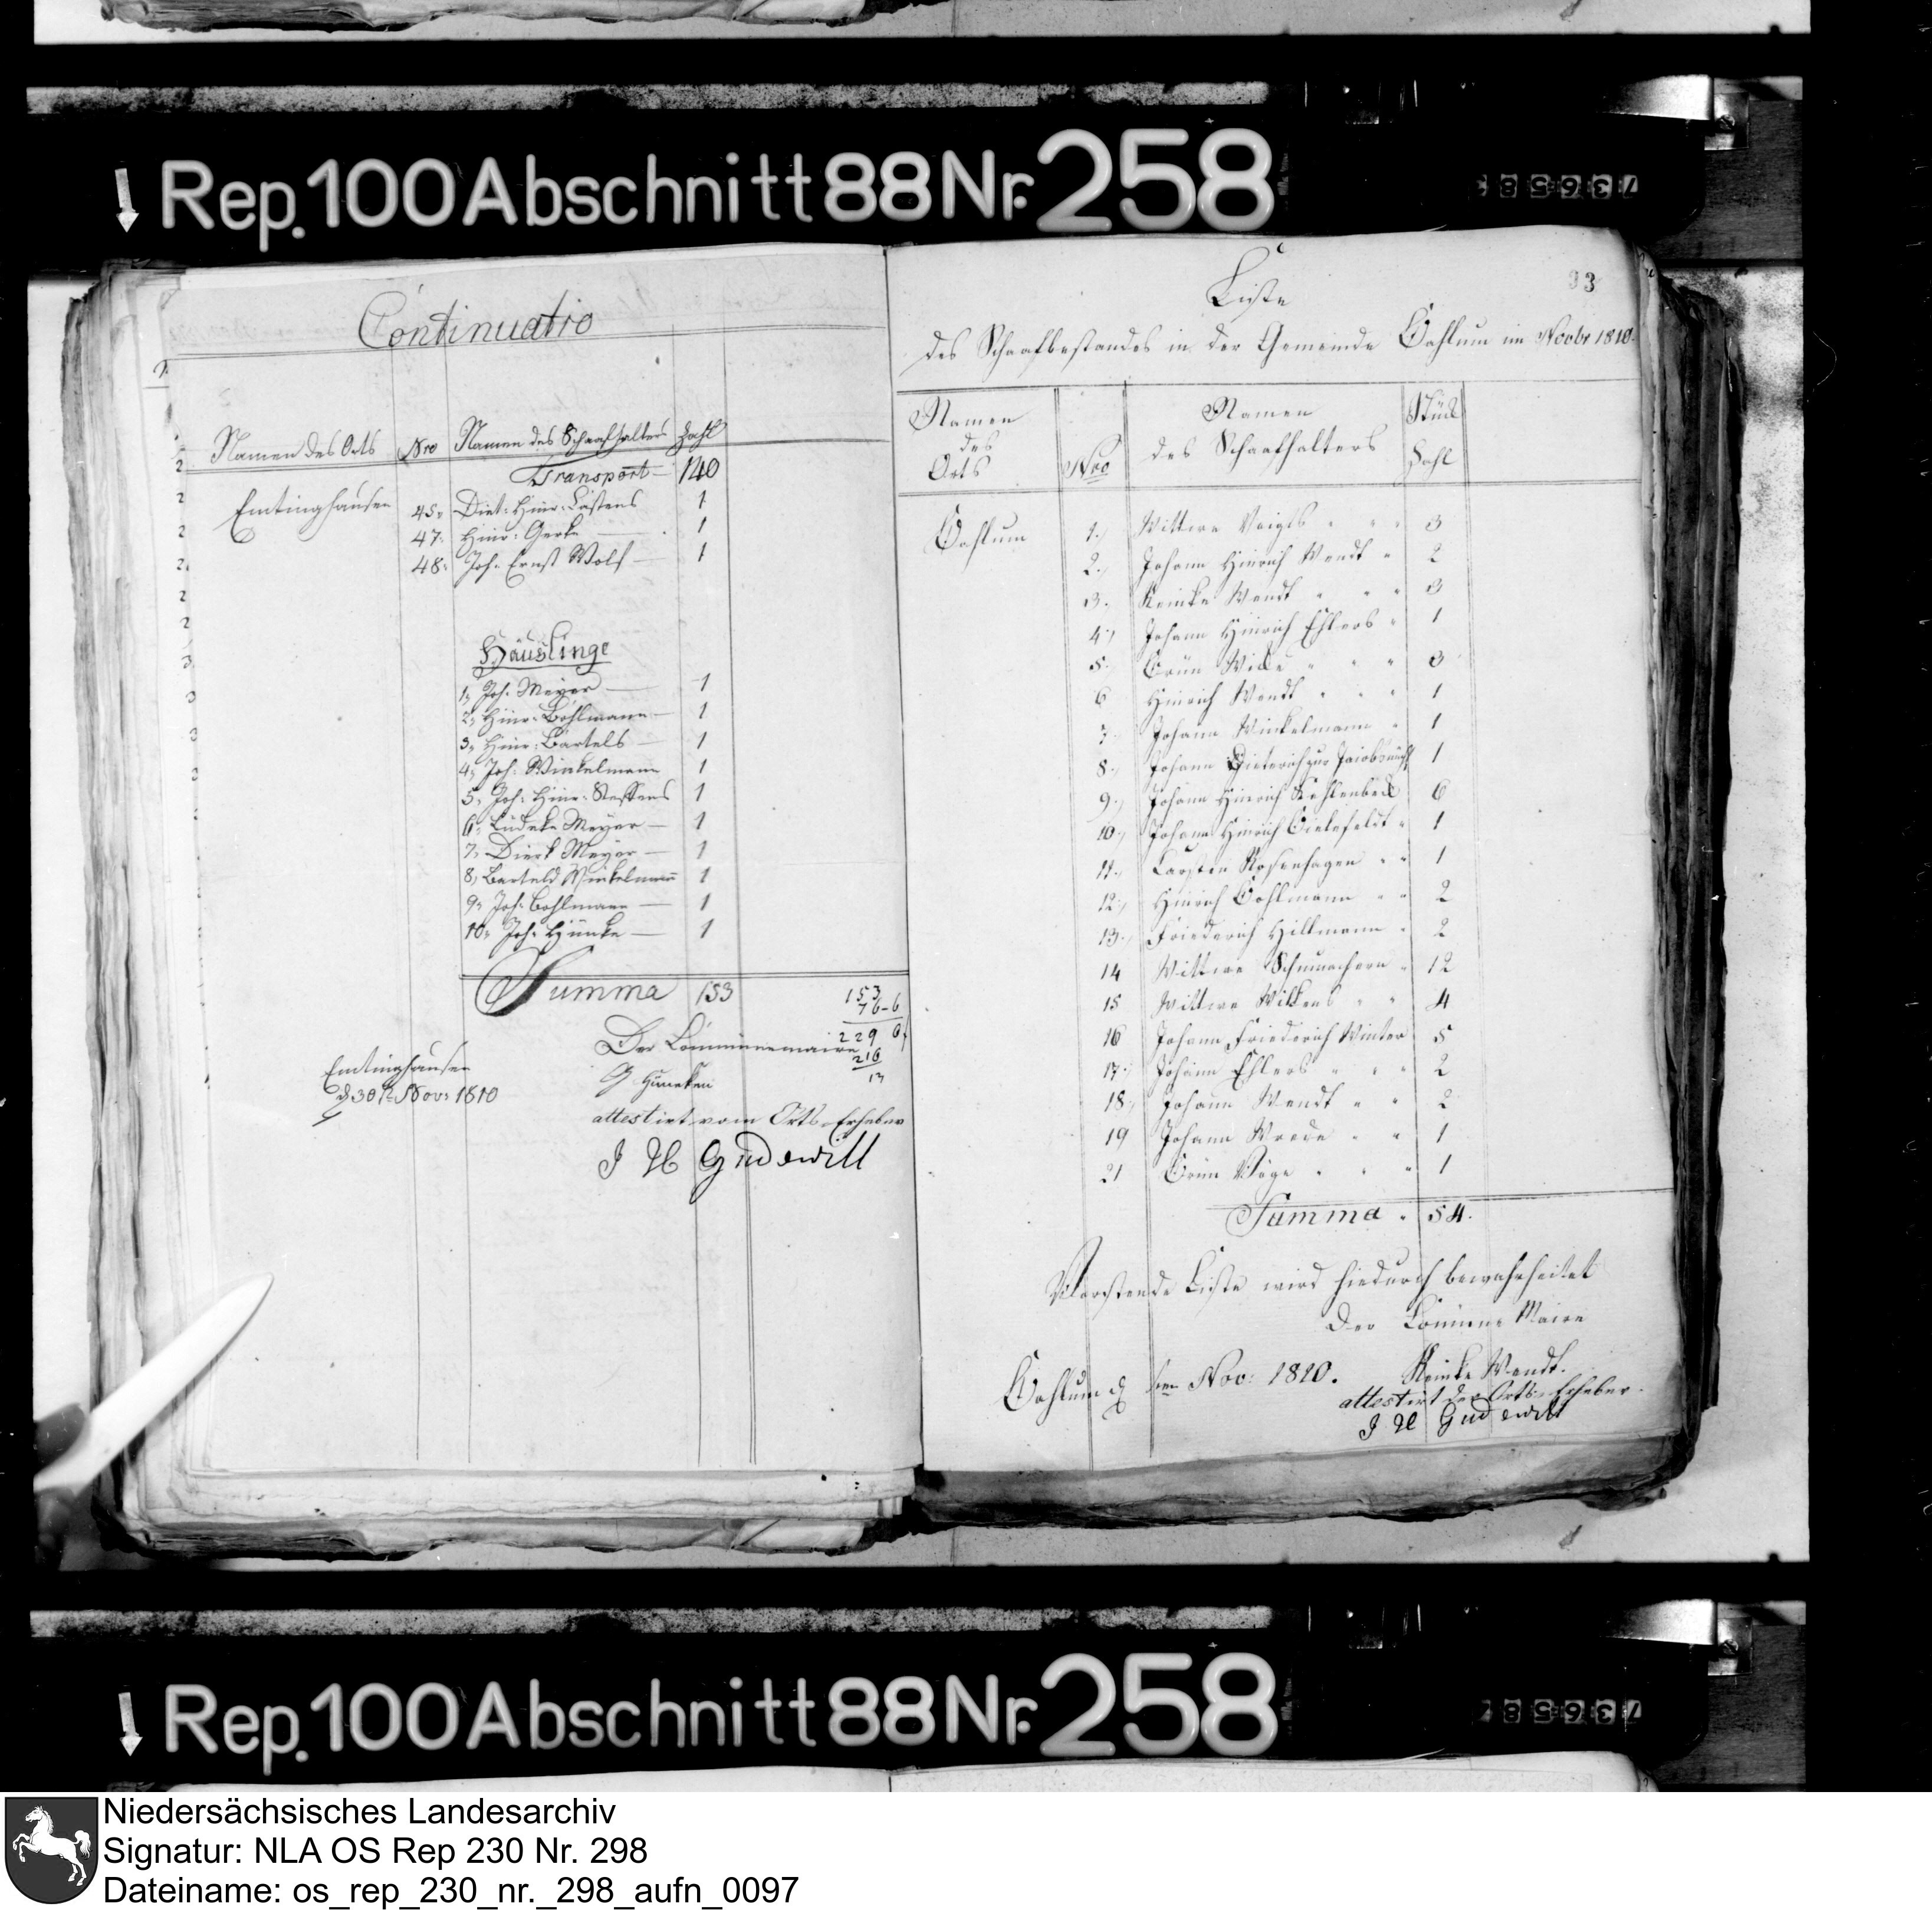 Rep. 100 Abschnitt 88 Nr. 258
73658
Continuatio
Namen des Orts Nro Namen des Schaafhalters Zahl
Transport — 140
Emtinghausen 45, Diet: Hinr: Castens 1
47, Hinr: Gerke — 1
48, Joh. Ernst Wolf — 1
Häuslinge
1, Joh. Meyer — 1
2, Hinr: Bohlmann — 1
3, Hinr: Bartels — 1
4, Joh: Winkelmann 1
5, Joh: Hinr: Steffens 1
6, Lüdeke Meyer — 1
7, Dierk Meyer — 1
8, Barteld Winkelmann 1
9, Joh. Bohlmann — 1
10, Joh. Hüneke — 1
Summa 153
153
76-6
229
216
13
Der Communemaire
Hüneken
Emtinghausen
d 30t Nov: 1810
attestirt vom Orts-Erheber
J H Gudewill
33
Liste
des Schaafbestandes in der Gemeinde Bahlum im Novbr 1810.
Namen des Orts Nro Namen des Schaafhalters Stück Zahl
Bahlum 1. Wittwe Voigts 3
2. Johann Hinrich Wendt 2
3. Reinke Wendt 3
4. Johann Hinrich Ehlers 1
5. Brün 3
6 Hinrich Wendt 1
7 Johann Winkelmann 1
8. Johann Dieterich zur 1
9. Johann Hinrich Kahlenbeck 6
10. Johann Hinrich Bielefeldt 1
11. Carsten Rosenhagen 1
12. Hinrich Bohlmann 2
13. Friederich Hillmann 2
14 Wittwe Schumachern 12
15 Wittwe Wilkens 4
16 Johann Friederich Winter 5
17. Johann Ehlers 2
18. Johann Wendt 2
19 Johann Wrede 1
21 Brün Böge 1
Summa 54.
Vorstende Liste wird hiedurch bewahrheitet
Der Commune Maire
Bahlum d ten Nov: 1810. Reinke Wendt.
attestirt der Orts-Erheber.
J H Gudewill
Rep. 100 Abschnitt 88 Nr. 258
73658
Niedersächsisches Landesarchiv
Signatur: NLA OS Rep 230 Nr. 298
Dateiname: os_rep_230_nr._298_aufn_0097